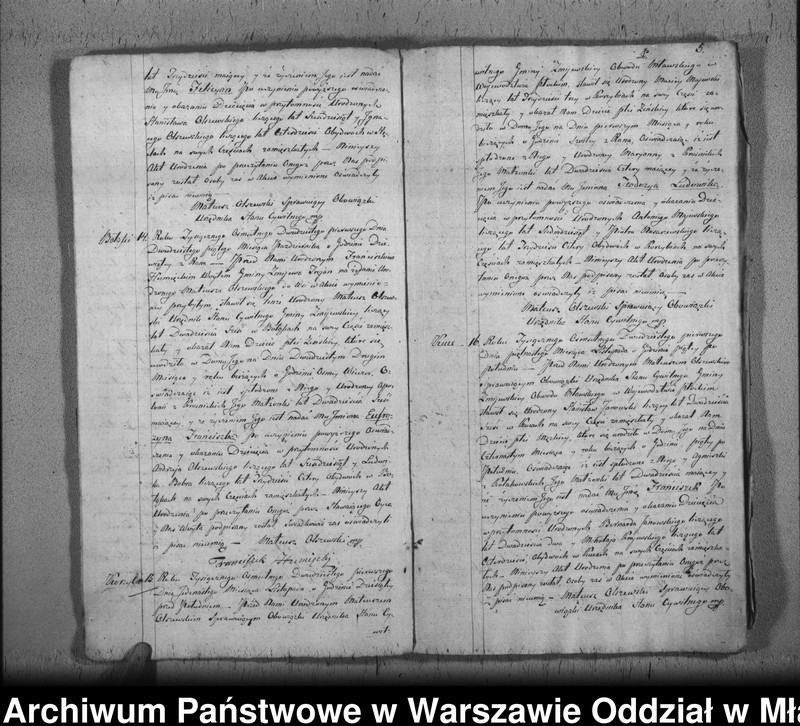 lat Trzydzieści maiący y że życzeniem Jego iest nadać
Mu Jmię Felicyan Po uczynieniu powyższego oświadcze-
nia y okazaniu Dziecięcia w przytomności Urodzonych
Stanisława Olszewskiego liczącego lat
Olszewskiego liczącego lat Czterdzieści Obydwóch w
na swych Częściach zamieszkałych — Ninieyszy
Akt Urodzenia po przeczytaniu Onegoż przez Nas podpi-
sany został Osoby zaś w Akcie wymienione oświadczyły
iż pisać nieumią
Mateusz Olszewski Sprawuiący Obowiązki
Urzędnika Stanu Cywilnego mp
14. Roku Tysiącznego Ośmsetnego Dwudziestego pierwszego Dnia
Dwudziestego piątego Miesiąca Października o Godzinie Dzie-
wiątey z Rana — Przed Nami Urodzonym Franciszkiem
Wóytem Gminy Żmijewo
Mateusza Olszewskiego do w Akcie wymienio-
przybyłym stawił się tenże Urodzony Mateusz Olszew-
ski Urzędnik Stanu Cywilnego Gminy Żmijewskiey, liczący
lat Dwadzieścia Sześć w na swey Części zamiesz-
kały, y okazał Nam Dziecię płci Żeńskiey, które się
urodziło w Domu Jego na Dniu Dwudziestym Drugim
Miesiąca y roku bieżących o Godzinie Ósmey Wieczór. O-
świadczaiąc iż iest spłodzone z Niego y Urodzoney Apo-
lonii z Jego Małżonki lat Dwadzieścia Sześć
maiącey, y że życzeniem Jego iest nadać Mu Jmiona Eufro-
zyna Franciszka po uczynieniu powyższego Oświad-
czenia y okazaniu Dziecięcia w przytomności Urodzonych
Andrzeja Olszewskiego liczącego lat y Ludwi-
ka Bobra liczącego lat Trzydzieści Cztery Obydwóch w Bo-
na swych Częściach zamieszkałych — Ninieyszy Akt
Urodzenia po przeczytaniu Onegoż przez Stawaiącego Oyca
y Nas Wóyta podpisany został Świadkowie zaś oświadczyli
iż pisać nieumią — Mateusz Olszewski mp
Franciszek
15. Roku Tysiącznego Ośmsetnego Dwudziestego pierwszego
Dnia Miesiąca Listopada o Godzinie Dziesiątey
przed Południem — Przed Nami Urodzonym Mateuszem
Olszewskim Sprawuiącym Obowiązki Urzędnika Stanu Cy-
wil.
5.
wilnego Gminy Żmijewskiey Obwodu Mławskiego w
Województwie płockim, stawił się Urodzony Marcin Majewski
liczący lat Trzydzieści trzy w na swey Części za-
mieszkały y okazał Nam Dziecię płci Żeńskiey które się uro-
dziło w Domu Jego na Dniu pierwszym Miesiąca y roku
bieżących o Godzinie z Rana Oświadczaiąc iż iest
spłodzone z Niego y Urodzoney Maryanny z
Jego Małżonki lat Dwadzieścia Cztery maiącey y że życze-
niem Jego iest nadać Mu Jmiona Teodozya Ludowika
Po uczynieniu powyższego oświadczenia y okazaniu Dzie-
cięcia w przytomności Urodzonych Antoniego Majewskiego
liczącego lat y Piotra liczą-
cego lat Trzydzieści Cztery Obydwóch w na swych
Częściach zamieszkałych — Ninieyszy Akt Urodzenia po przeczy-
taniu Onegoż przez Nas podpisany został Osoby zaś w Akcie
wymienione oświadczyły iż pisać nieumią —
Mateusz Olszewski Sprawuiący Obowiązki
Urzędnika Stanu Cywilnego mp
16. Roku Tysiącznego Ośmsetnego Dwudziestego pierwszego
Dnia piętnastego Miesiąca Listopada o Godzinie piątey po
południu — Przed Nami Urodzonym Mateuszem Olszewskim
Sprawuiącym Obowiązki Urzędnika Stanu Cywilnego Gminy
Żmijewskiey Obwodu Mławskiego w Województwie płockim
stawił się Urodzony Stanisław Janowski liczący lat Dwadzieścia
Sześć w na swey Części zamieszkały y okazał Nam
Dziecię płci Męzkiey, które się urodziło w Domu Jego na Dniu
Czternastym Miesiąca y roku bieżących o Godzinie piątey po
Południu, Oświadczaiąc iż iest spłodzone z Niego y Agnieszki
z Jego Małżonki lat Dwadzieścia maiącey y
że życzeniem Jego iest nadać Mu Jmię Franciszek Po
uczynieniu powyższego oświadczenia y okazaniu Dziecięcia
w przytomności Urodzonych Bernarda Janowskiego liczącego
lat Dwadzieścia dwa y Mikołaja liczącego lat
Czterdzieści, Obydwóch w na swych Częściach zamieszka-
łych — Ninieyszy Akt Urodzenia po przeczytaniu Onegoż przez
Nas podpisany został Osoby zaś w Akcie wymienione oświadczyły
iż pisać nieumią — Mateusz Olszewski Sprawuiący Obo-
wiązki Urzędnika Stanu Cywilnego mp
Archiwum Państwowe w Warszawie Oddział w Mła